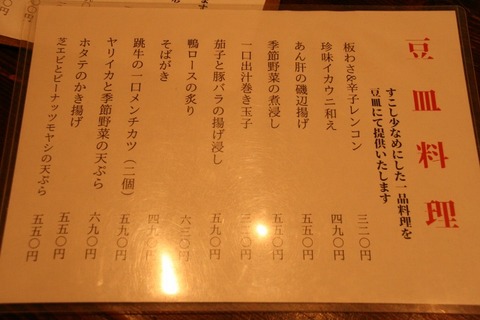 豆皿料理
すこし少なめにした一品料理を
豆皿にて提供いたします
板わさ&辛子レンコン 三二〇円
珍味イカウニ和え 四九〇円
あん肝の磯辺揚げ 五五〇円
季節野菜の煮浸し 五五〇円
一口出汁巻き玉子
茄子と豚バラの揚げ浸し 五九〇円
鴨ロースの炙り 六三〇円
そばがき 四九〇円
跳牛の一口メンチカツ(二個) 五九〇円
ヤリイカと季節野菜の天ぷら 六九〇円
ホタテのかき揚げ 五五〇円
芝エビとピーナッツモヤシの天ぷら 五五〇円